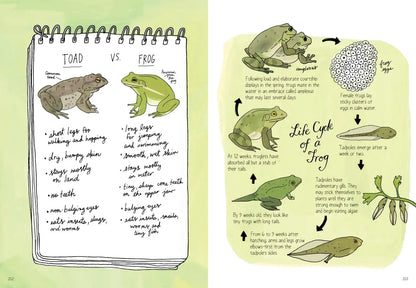 TOAD
VS.
FROG
common toad
American green tree frog
• short legs for
walking and hopping
• dry, bumpy skin
• stays mostly
on land
• no teeth
• non bulging eyes
• eats insects, slugs,
and worms
• long legs
for jumping
and swimming
• smooth, wet skin
• stays mostly
in water
• tiny, sharp cone teeth
on the upper jaw
• bulging eyes
• eats insects, snails,
worms and
tiny fish
212
amplexus
frog
eggs
Following loud and elaborate courtship
displays in the spring, frogs mate in the
water in an embrace called amplexus
that may last several days.
Female frogs lay
sticky clusters of
eggs in calm water.
Life Cycle
of a
Frog
Tadpoles emerge after a
week or two.
Tadpoles have
rudimentary gills. They
may stick themselves to
plants until they are
strong enough to swim
and begin eating algae.
From 6 to 9 weeks after
hatching, arms and legs grow
elbows-first from the
tadpole's sides.
By 9 weeks old, they look like
tiny frogs with long tails.
At 12 weeks froglets have
absorbed all but a stub of
their tails.
213